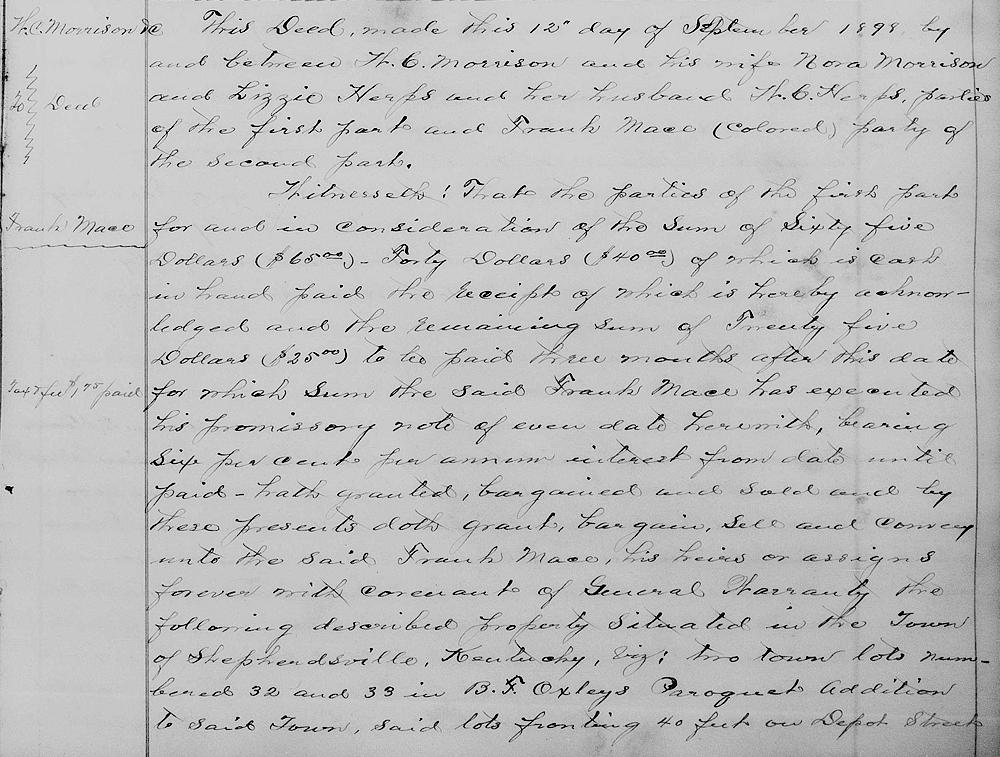 W.C. Morrison &c
To Deed
Frank Mace
Tax & fee $1.75 paid
This Deed, made this 12" day of September 1898, by
and between W. C. Morrison and his wife Nora Morrison
and Lizzie Herps and her husband W. C. Herps, parties
of the first part and Frank Mace (Colored) party of
the second part.
Witnesseth! That the parties of the first part
for and in consideration of the Sum of Sixty five
Dollars ($65.00) - Forty Dollars ($40.00) of which is cash
in hand paid the receipt of which is hereby acknow-
ledged and the remaining sum of Twenty five
Dollars ($25.00) to be paid three months after this date
for which Sum the said Frank Mace has executed
his promissory note of even date herewith, bearing
Six per cent per annum interest from date until
paid - hath granted, bargained and sold and by
these presents doth grant, bargain, sell and Convey
unto the said Frank Mace, his heirs or assigns
forever with covenant of General Warranty the
following described property Situated in the Town
of Shepherdsville, Kentucky, Viz: two town lots num-
bered 32 and 33 in B.F. Oxleys Paroquet Addition
to said Town, said lots fronting 40 feet on Depot Street